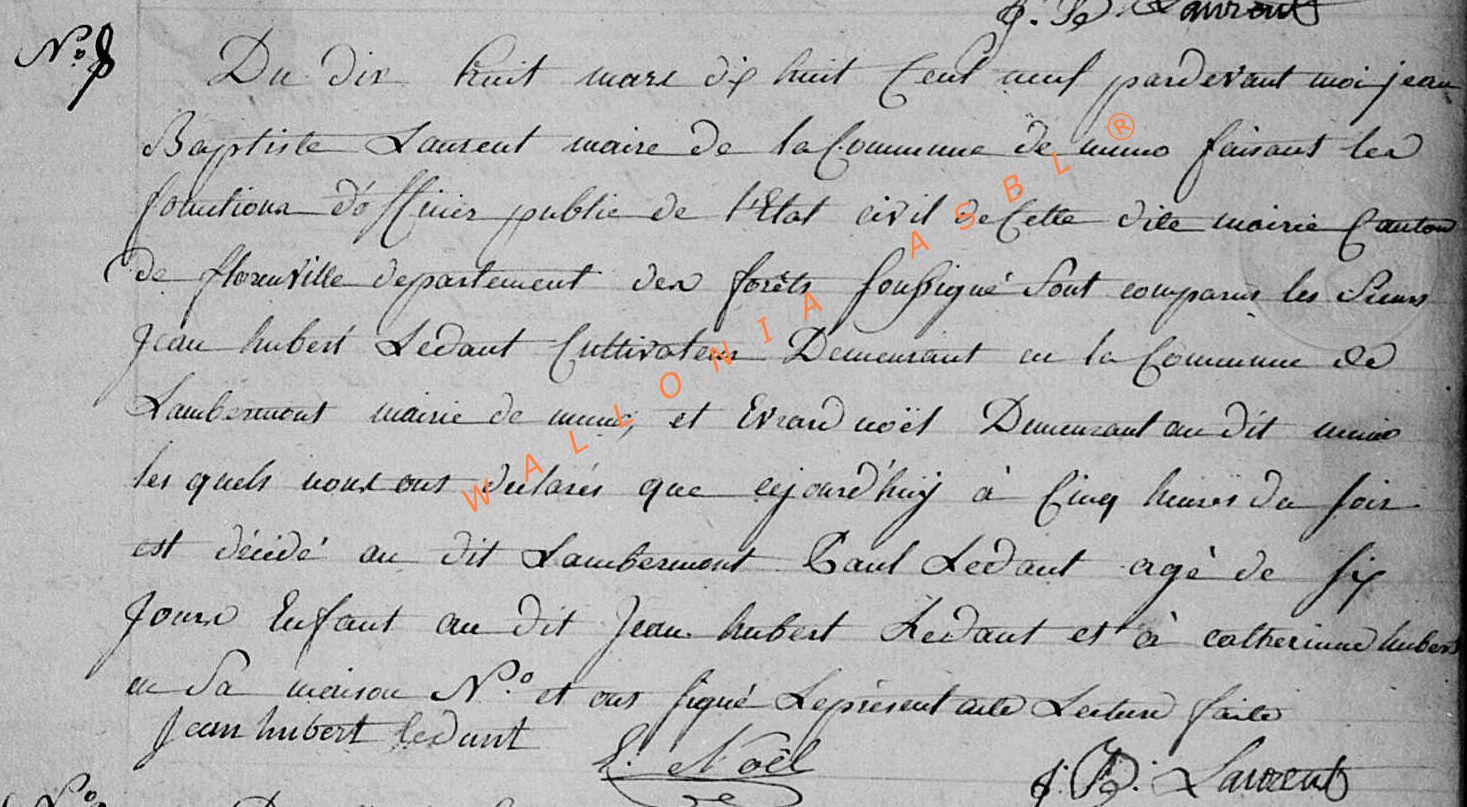 J. Bte. Laurent
N.o 8
Du dix huit mars dix huit Cent neuf pardevant moi jean
Baptiste Laurent maire de la Commune de muno faisant les
fonctions d'officier public de l'Etat civil de Cette dite mairie Canton
de florenville departement des forêts soussigné Sont comparus les Sieurs
Jean hubert Ledant Cultivateur Demeurant en la Commune de
Lambermont mairie de muno, et Evrard noël Demeurant au dit muno
les quels nous ont declarés que cejourd'huy à Cinq heures du soir
est décédé au dit Lambermont Paul Ledant agé de six
Jours Enfant au dit Jean hubert Ledant et à catherinne hubert
en Sa maison N.o et ont signé Leprésent acte Lecture faite
Jean hubert ledant
E. Noël
J. B. Laurent
N.o
WALLONIA ASBL ®